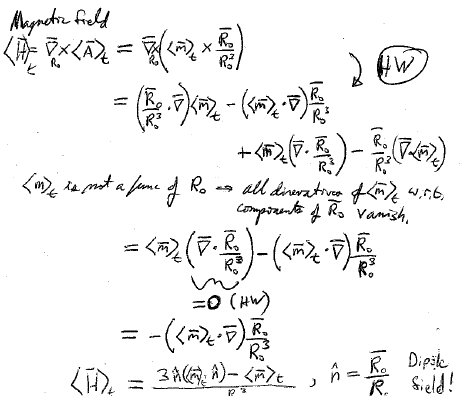 Magnetic field
⟨H̄⟩_t = ∇̄_{R₀} × ⟨Ā⟩_t = ∇̄_{R₀} × (⟨m̄⟩_t × R̄₀/R₀³)
HW
= (R̄₀/R₀³ · ∇̄)⟨m̄⟩_t − (⟨m̄⟩_t · ∇̄) R̄₀/R₀³
+ ⟨m̄⟩_t (∇̄ · R̄₀/R₀³) − R̄₀/R₀³ (∇̄ · ⟨m̄⟩_t)
⟨m̄⟩_t is not a func of R₀ ⇒ all direvatives of ⟨m̄⟩_t w.r.t.
components of R̄₀ vanish.
= ⟨m̄⟩_t (∇̄ · R̄₀/R₀³) − (⟨m̄⟩_t · ∇̄) R̄₀/R₀³
= 0 (HW)
= −(⟨m̄⟩_t · ∇̄) R̄₀/R₀³
⟨H̄⟩_t = (3n̂(⟨m̄⟩_t · n̂) − ⟨m̄⟩_t)/R₀³ , n̂ = R̄₀/R₀ Dipole field!